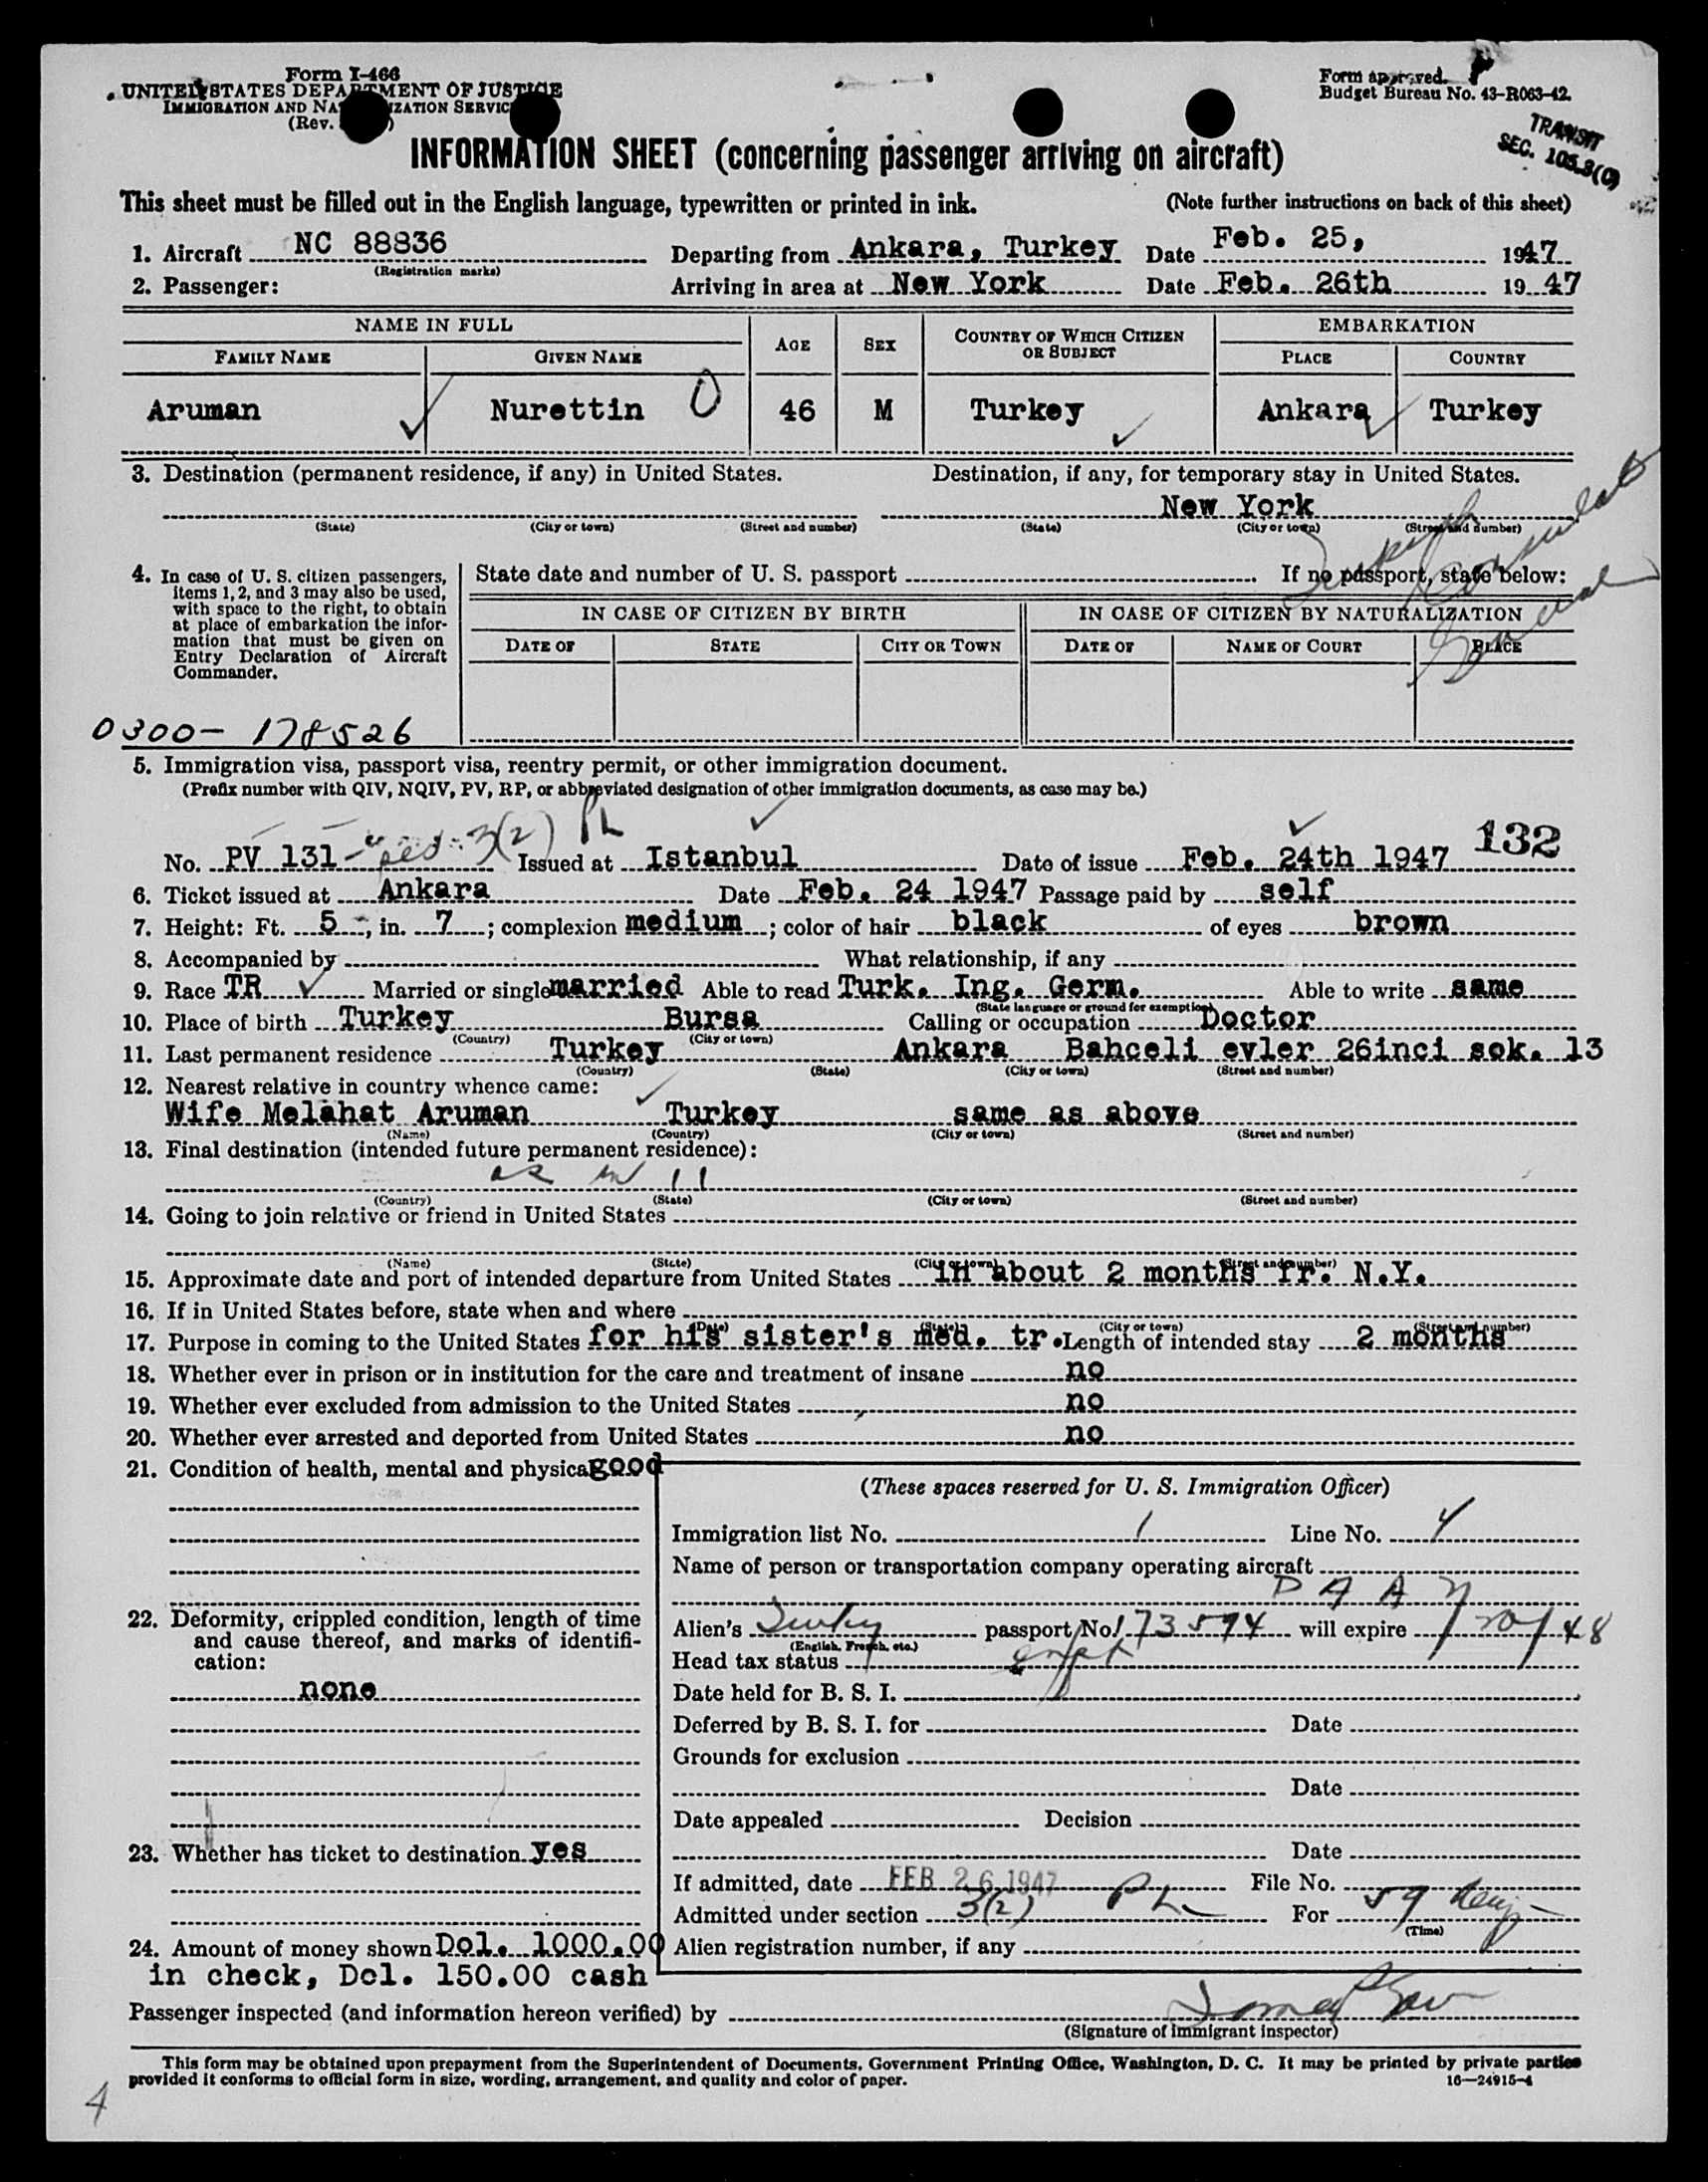 Form I-466
UNITED STATES DEPARTMENT OF JUSTICE
IMMIGRATION AND SERVICE
(Rev. )
Form approved.
Budget Bureau No. 43-R063-42.
TRANSIT
SEC. 105.3(C)
INFORMATION SHEET (concerning passenger arriving on aircraft)
This sheet must be filled out in the English language, typewritten or printed in ink. (Note further instructions on back of this sheet)
1. Aircraft NC 88836 Departing from Ankara, Turkey Date Feb. 25, 1947
(Registration marks)
2. Passenger: Arriving in area at New York Date Feb. 26th 19 47
NAME IN FULL AGE SEX COUNTRY OF WHICH CITIZEN OR SUBJECT EMBARKATION
FAMILY NAME GIVEN NAME PLACE COUNTRY
Aruman Nurettin 46 M Turkey Ankara Turkey
3. Destination (permanent residence, if any) in United States. Destination, if any, for temporary stay in United States.
New York
(State) (City or town) (Street and number) (State) (City or town) (Street and number)
Consulate
General
4. In case of U. S. citizen passengers, items 1, 2, and 3 may also be used, with space to the right, to obtain at place of embarkation the information that must be given on Entry Declaration of Aircraft Commander.
State date and number of U. S. passport . If no passport, state below:
IN CASE OF CITIZEN BY BIRTH IN CASE OF CITIZEN BY NATURALIZATION
DATE OF STATE CITY OR TOWN DATE OF NAME OF COURT PLACE
0300- 178526
5. Immigration visa, passport visa, reentry permit, or other immigration document.
(Prefix number with QIV, NQIV, PV, RP, or abbreviated designation of other immigration documents, as case may be.)
No. PV 131 3(2) Issued at Istanbul Date of issue Feb. 24th 1947 132
6. Ticket issued at Ankara Date Feb. 24 1947 Passage paid by self
7. Height: Ft. 5, in. 7; complexion medium; color of hair black of eyes brown
8. Accompanied by What relationship, if any
9. Race TR Married or single married Able to read Turk. Ing. Germ. Able to write same
(State language or ground for exemption)
10. Place of birth Turkey Bursa Calling or occupation Doctor
(Country) (City or town)
11. Last permanent residence Turkey Ankara Bahceli evler 26inci sok. 13
(Country) (State) (City or town) (Street and number)
12. Nearest relative in country whence came:
Wife Melahat Aruman Turkey same as above
(Name) (Country) (City or town) (Street and number)
13. Final destination (intended future permanent residence):
as in 11
(Country) (State) (City or town) (Street and number)
14. Going to join relative or friend in United States
(Name) (State) (City or town) (Street and number)
15. Approximate date and port of intended departure from United States in about 2 months fr. N.Y.
16. If in United States before, state when and where
(Date) (State) (City or town) (Street and number)
17. Purpose in coming to the United States for his sister's med. tr. Length of intended stay 2 months
18. Whether ever in prison or in institution for the care and treatment of insane no
19. Whether ever excluded from admission to the United States no
20. Whether ever arrested and deported from United States no
21. Condition of health, mental and physical good
22. Deformity, crippled condition, length of time and cause thereof, and marks of identification:
none
23. Whether has ticket to destination yes
24. Amount of money shown Dol. 1000.00
in check, Dol. 150.00 cash
(These spaces reserved for U. S. Immigration Officer)
Immigration list No. 1 Line No. 4
Name of person or transportation company operating aircraft
P A A
Alien's Turkey passport No. 173594 will expire 7/20/48
(English, French, etc.)
Head tax status
Date held for B. S. I.
Deferred by B. S. I. for Date
Grounds for exclusion
Date
Date appealed Decision
Date
If admitted, date FEB 26 1947 File No.
Admitted under section 3(2) For 59 days
(Time)
Alien registration number, if any
Passenger inspected (and information hereon verified) by
(Signature of immigrant inspector)
This form may be obtained upon prepayment from the Superintendent of Documents, Government Printing Office, Washington, D. C. It may be printed by private parties
provided it conforms to official form in size, wording, arrangement, and quality and color of paper. 16—24915-4
4